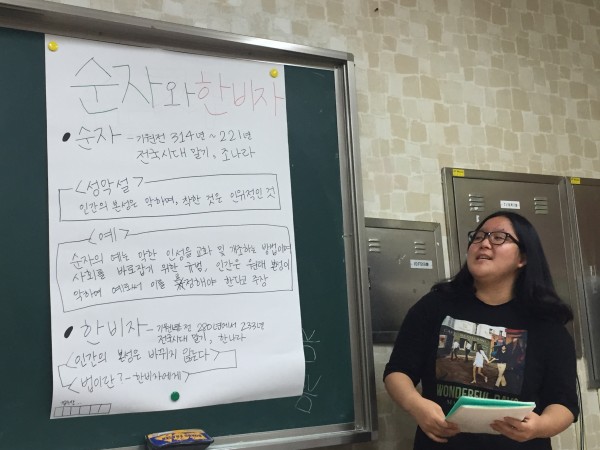 순자와 한비자
• 순자 - 기원전 314년 ~ 221년
전국시대 말기, 조나라
<성악설>
인간의 본성은 악하며, 착한 것은 인위적인 것
<예>
순자의 예는 악한 인성을 교화 및 개조하는 방법이며
사회를 바로잡기 위한 규범, 인간은 원래 본성이
악하며 예로써 이를 교정해야 한다고 주장
• 한비자 - 기원전 280년에서 233년
전국시대 말기, 한나라
<인간의 본성은 바뀌지 않는다>
<법이란? - 한비자에게>
WONDERFUL DAYS